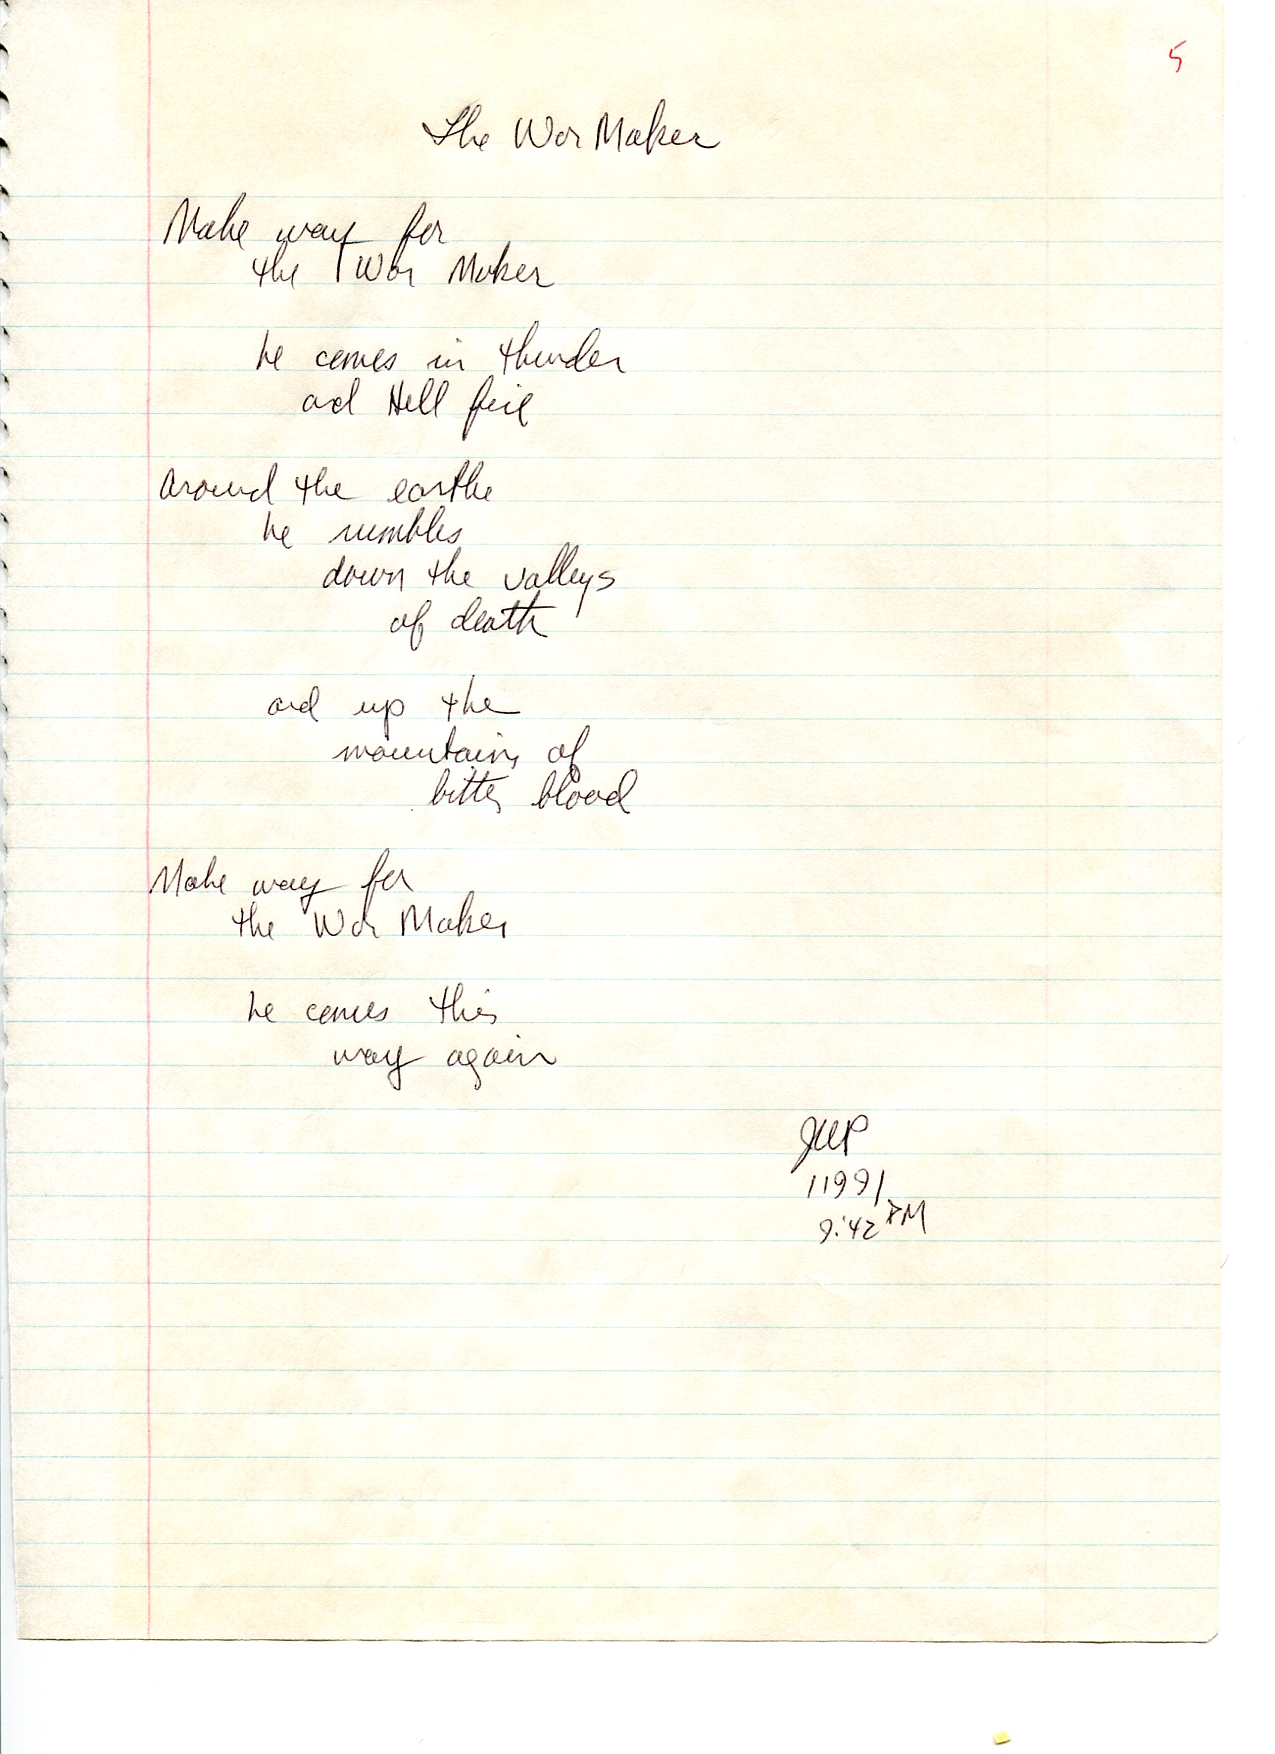 5
The War Maker
Make way for
the War Maker
he comes in thunder
and Hell fire
Around the earthe
he rumbles
down the valleys
of death
and up the
mountains of
bitter blood
Make way for
the War Maker
he comes this
way again
JWP
11991
9:42 PM